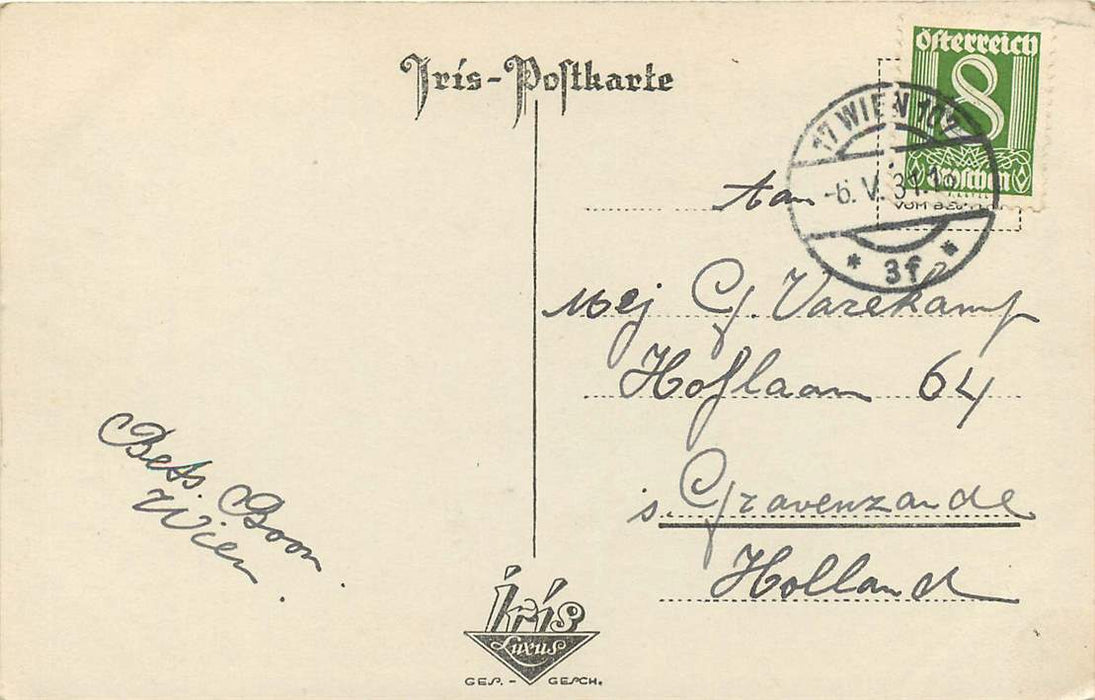 Iris-Postkarte
Österreich
8
Groschen
17 WIEN 101
-6.V.31.18
* 3f *
Aan
Mej G. Varekamp
Hoflaan 64
s. Gravenzande
Holland
Bets. Boon
Wien.
Iris
Luxus
GES. - GESCH.